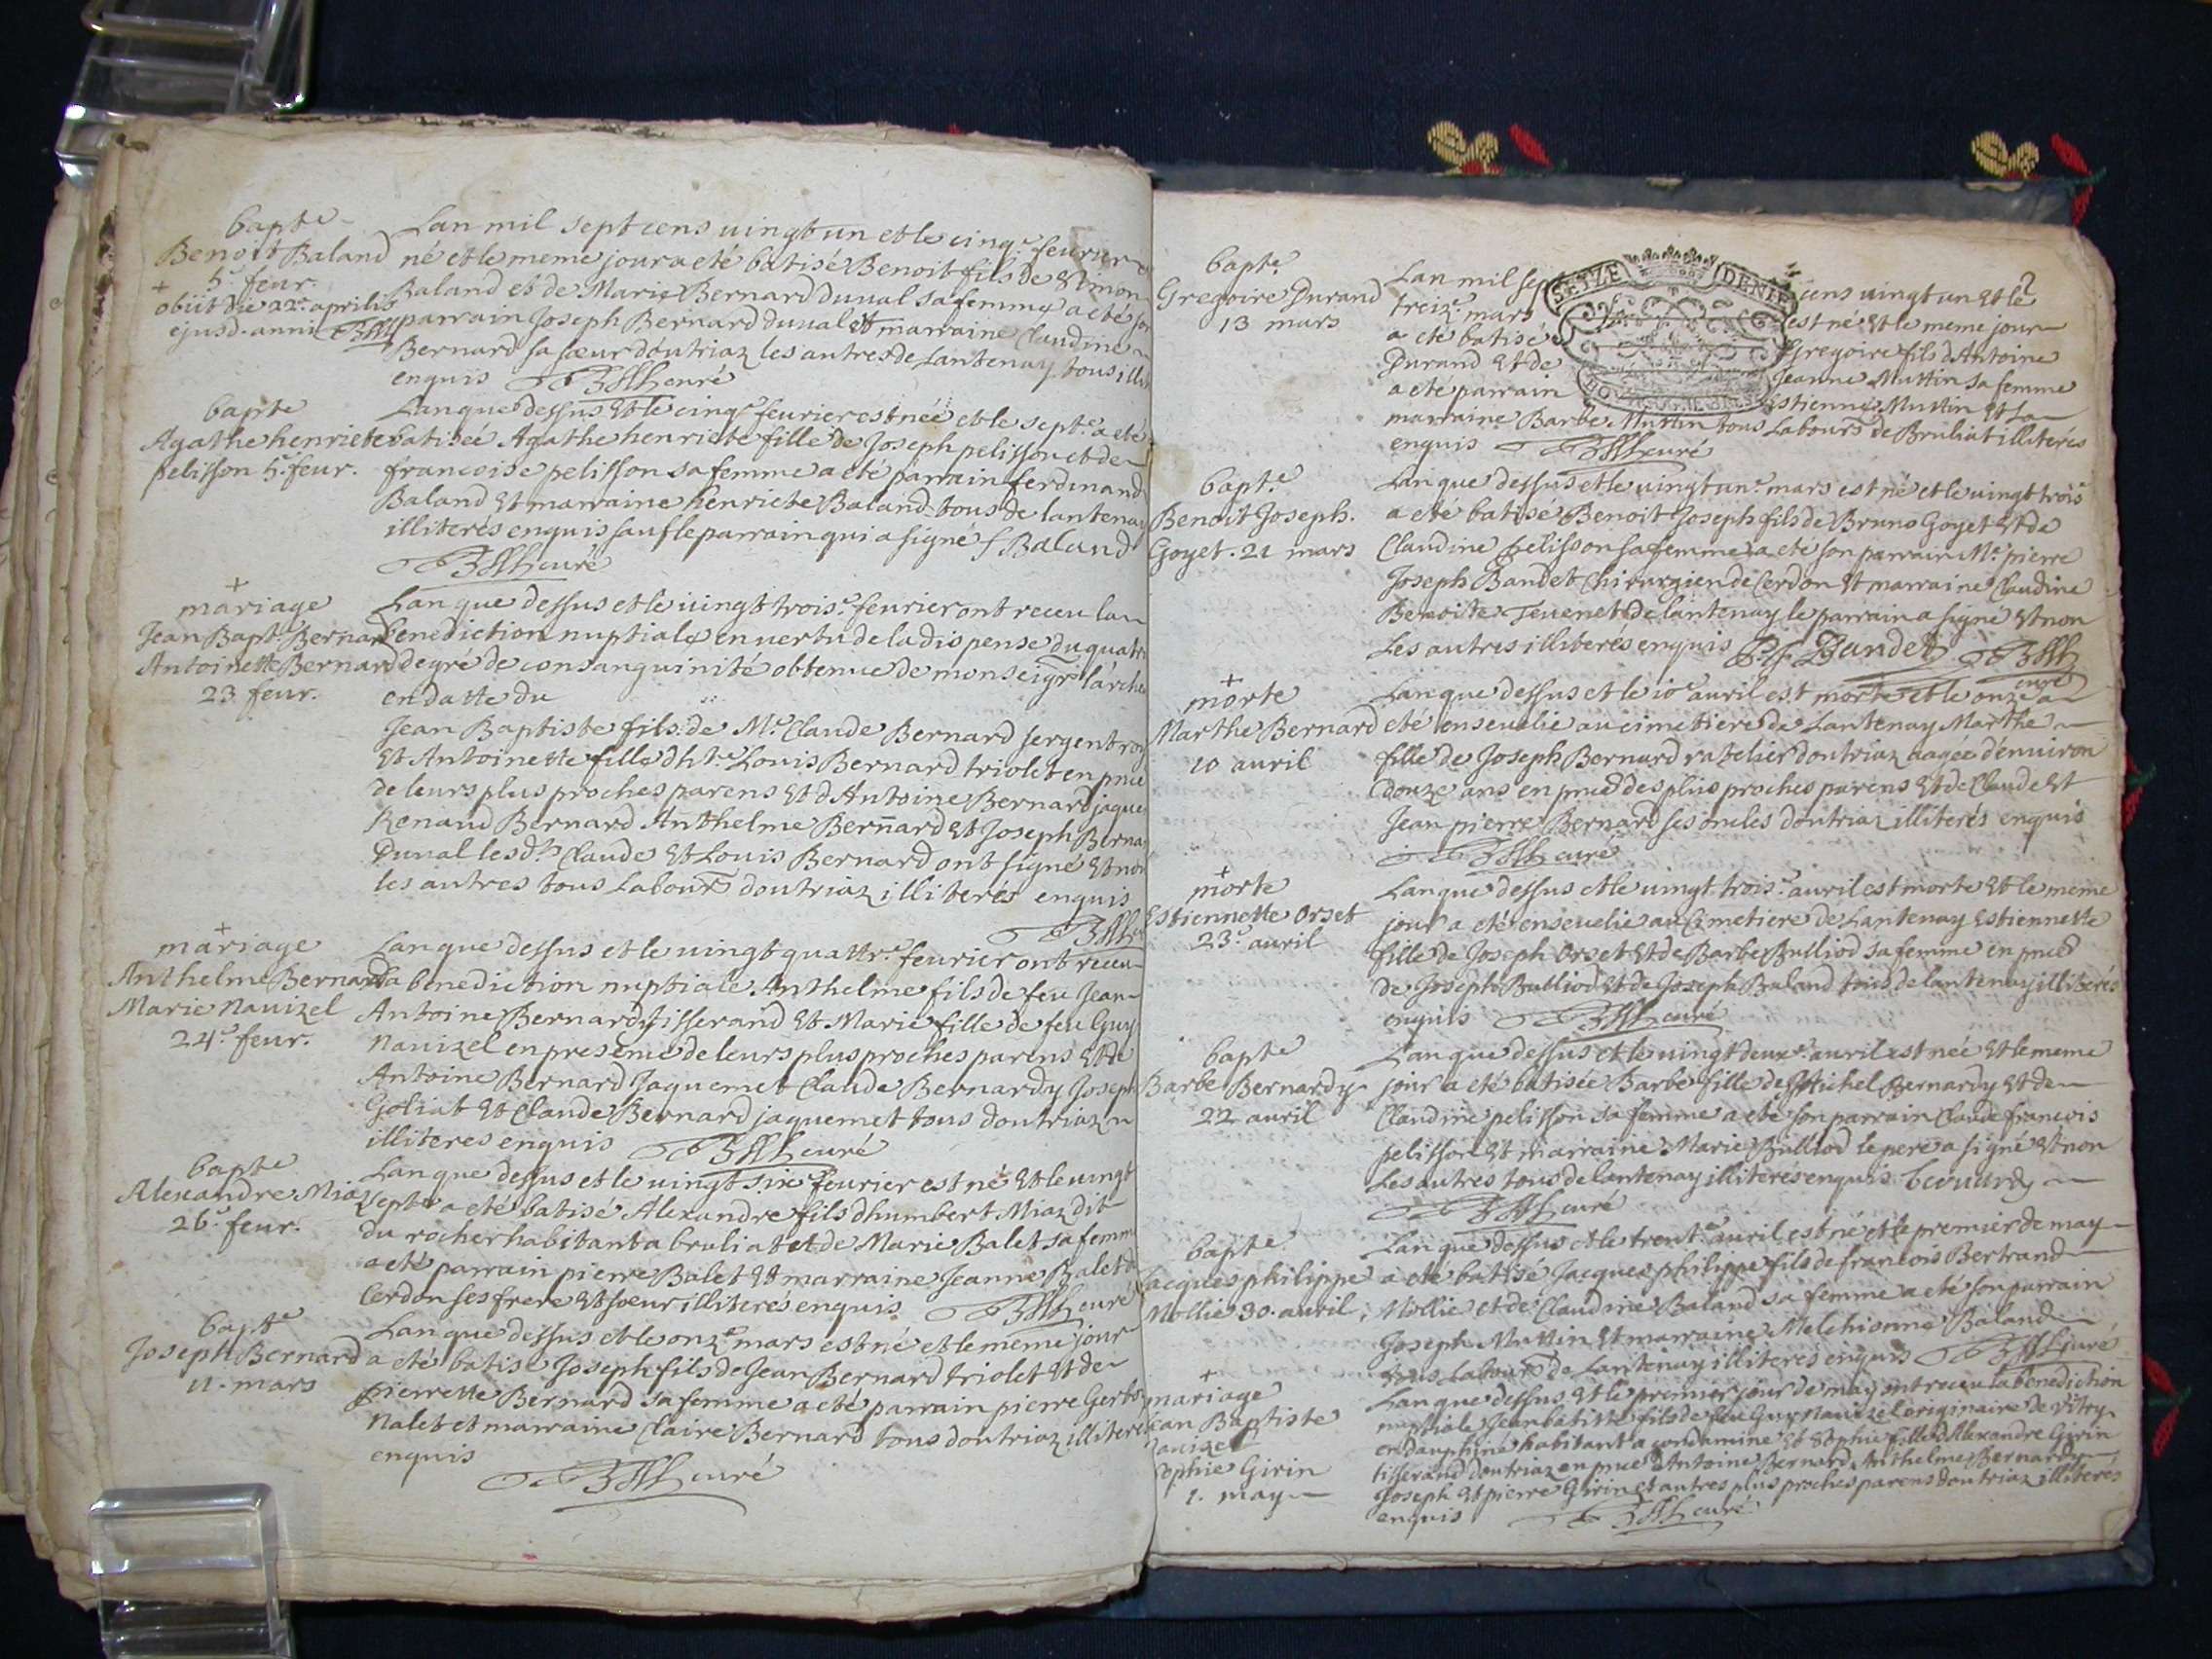 bapte
Benoit Baland
5e feur.
+
obiit die 22e aprilis
ejusd. anni
Lan mil sept cens uingt un et le cinqe feurier
né et le meme jour a eté batisé Benoit fils de
Baland et de Marie Bernard duual sa femme a eté son
parrain Joseph Bernard duual Et marraine Claudine
Bernard sa sœur doutriaz les autres de Lantenay tous illit
enquis curé
bapte
Agathe henriete
pelisson 5e feur.
Lan que dessus Et le cinqe feurier est née et le septe a eté
batiseé Agathe henriete fille de Joseph pelisson et de
francoise pelisson sa femme a eté parrain ferdinand
Baland Et marraine henriete Baland tous de lantenay
illiterés enquis sauf le parrain qui a signé f Baland
curé
+
mariage
Jean Bapt. Bernard
Antoinette Bernard
23 feur.
Lan que dessus et le uingt troise feurier ont receu la
benediction nuptiale en uertu de la dispense du quatri
degré de consanguinité obtenue de monseigr larche
en datte du
Jean Baptiste fils de Me Claude Bernard sergent roy
Et Antoinette fille dhte Louis Bernard triolet en pnce
de leurs plus proches parens Et dAntoine Bernard jaque
Renaud Bernard Anthelme Bernard Et Joseph Berna
Duual lesds Claude Et Louis Bernard ont signé Et non
les autres tous Labours doutriaz illiterés enquis
+
mariage
Anthelme Bernard
Marie Nauizel
24e feur.
Lan que dessus et le uingt quattre feurier ont receu
la benediction nuptiale Anthelme fils de feu Jean
Antoine Bernardy tisserand Et Marie fille de feu Guy
Nauizel en presence de leurs plus proches parens Et de
Antoine Bernard Jaquemet Claude Bernardy Joseph
Goliat Et Claude Bernard jaquemet tous doutriaz
illiteres enquis curé
bapte
Alexandre Miaz
26e feur.
Lan que dessus et le uingt sixe feurier est né Et le uingt
septe a eté batisé Alexandre fils dhumbert Miaz dit
du rocher habitant a bruliat et de Marie Balet sa femme
a eté parrain pierre Balet Et marraine Jeanne Balet d
Cerdon ses frere Et sœur illiterés enquis curé
bapte
Joseph Bernard
11. mars
Lan que dessus et le onze mars est né et le meme jour
a eté batisé Joseph fils de Jean Bernard triolet Et de
pierrette Bernard sa femme a eté parrain pierre
Nalet et marraine Claire Bernard tous doutriaz illitere
enquis
curé
bapte
Gregoire Durand
13 mars
SEIZE DENIE
2
Lan mil sep cens uingt un Et le
treize mars est né Et le meme jour
a eté batisé Gregoire fils dAntoine
Durand Et de Jeanne Muttin sa femme
a eté parrain Estienne Muttin Et la
marraine Barbe Muttin tous Labours de Bruliat illiterés
enquis curé
bapte
Benoit Joseph
Goyet. 21 mars
Lan que dessus et le uingt une mars est né et le uingt trois
a eté batisé Benoit Joseph fils de Bruno Goyet Et de
Claudine pelisson sa femme a eté son parrain Me pierre
Joseph Bandet Chirurgien de Cerdon Et marraine Claudine
Benoite Teuenet de lantenay le parrain a signé Et non
Les autres illiterés enquis Bandet
curé
+
morte
Marthe Bernard
10 auril
Lan que dessus et le 10e auril est morte et le onze a
eté enseuelie au cimetiere de Lantenay Marthe
fille de Joseph Bernard ratelier doutriaz aagée denuiron
douze ans en pnce des plus proches parens Et de Claude Et
Jean pierre Bernard ses oncles doutriaz illiterés enquis
curé
+
morte
Estiennette Orset
23e auril
Lan que dessus et le uingt troise auril est morte Et le meme
jour a eté enseuelie au Cimetiere de Lantenay Estiennette
fille de Joseph Orset Et de Barbe Bulliod sa femme en pnce
de Joseph Bulliod Et de Joseph Baland tous de lantenay illiterés
enquis curé
bapte
Barbe Bernardy
22 auril
Lan que dessus et le uingt deuxe auril est née Et le meme
jour a eté batisée Barbe fille de Michel Bernardy Et de
Claudine pelisson sa femme a eté son parrain Claude francois
pelisson Et marraine Marie Bulliod le pere a signé Et non
Les autres tous de lantenay illiterés enquis bernardy
curé
bapte
Jacques philippe
Mollie 30. auril
Lan que dessus et le trente auril est né et le premier de may
a eté batisé Jacques philippe fils de francois Bertrand
Mollie et de Claudine Baland sa femme a eté son parrain
Joseph Muttin Et marraine Melchionne Baland
tous Labours de Lantenay illiterés enquis curé
+
mariage
Jean Baptiste
Nauizel
Sophie Girin
1. may
Lan que dessus Et le premier jour de may ont receu la benediction
nuptiale Jean batiste fils de feu Guy Nauizel originaire de Vitry
en dauphiné habitant a condamine Et Sophie fille dAlexandre Girin
tisserand doutriaz en pnce dAntoine Bernard Anthelme Bernardy
Joseph Et pierre Girin Et autres plus proches parens doutriaz illiterés
enquis curé